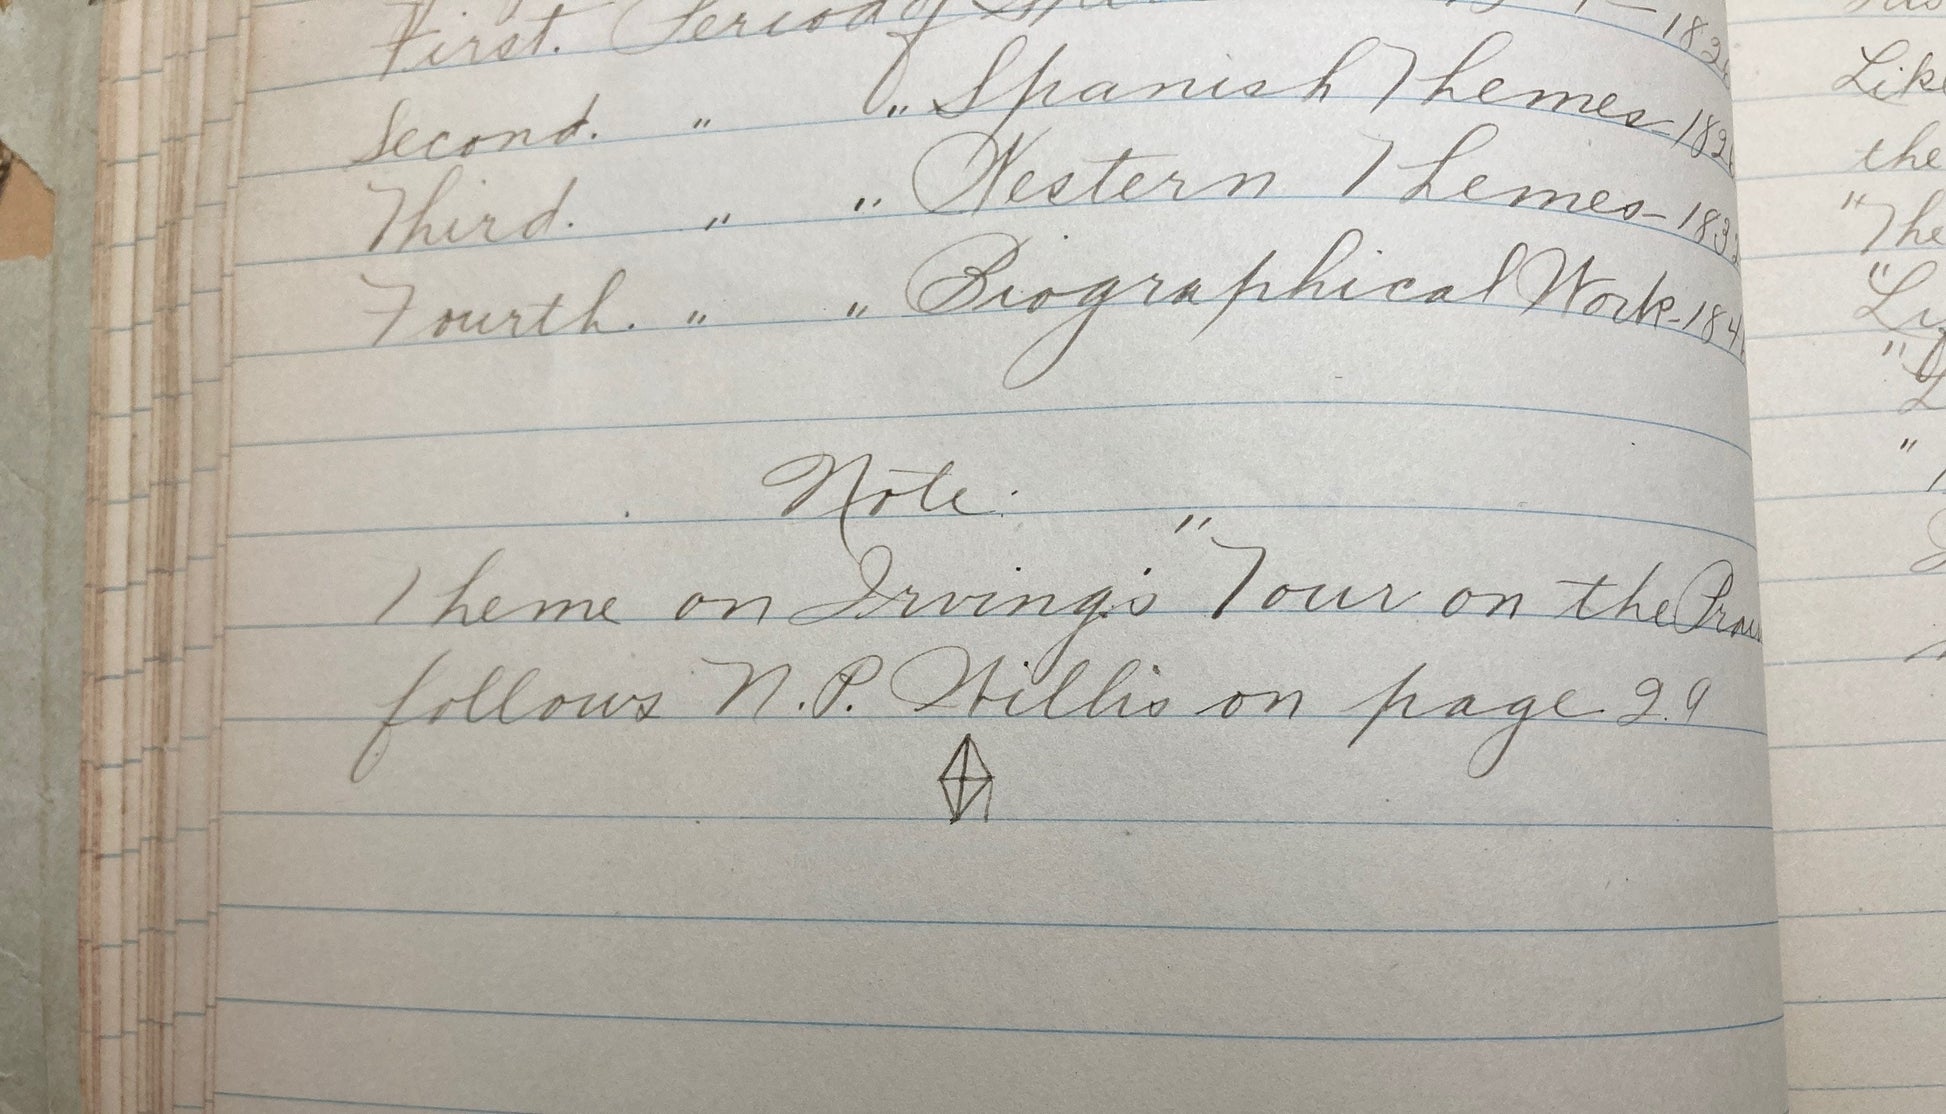 First. Period of
Second. " " Spanish Themes-182
Third. " " Western Themes-183
Fourth. " " Biographical Work-184
Note:
Theme on Irving's "Tour on the
follows N.P. Willis on page 29
Like
the
"The